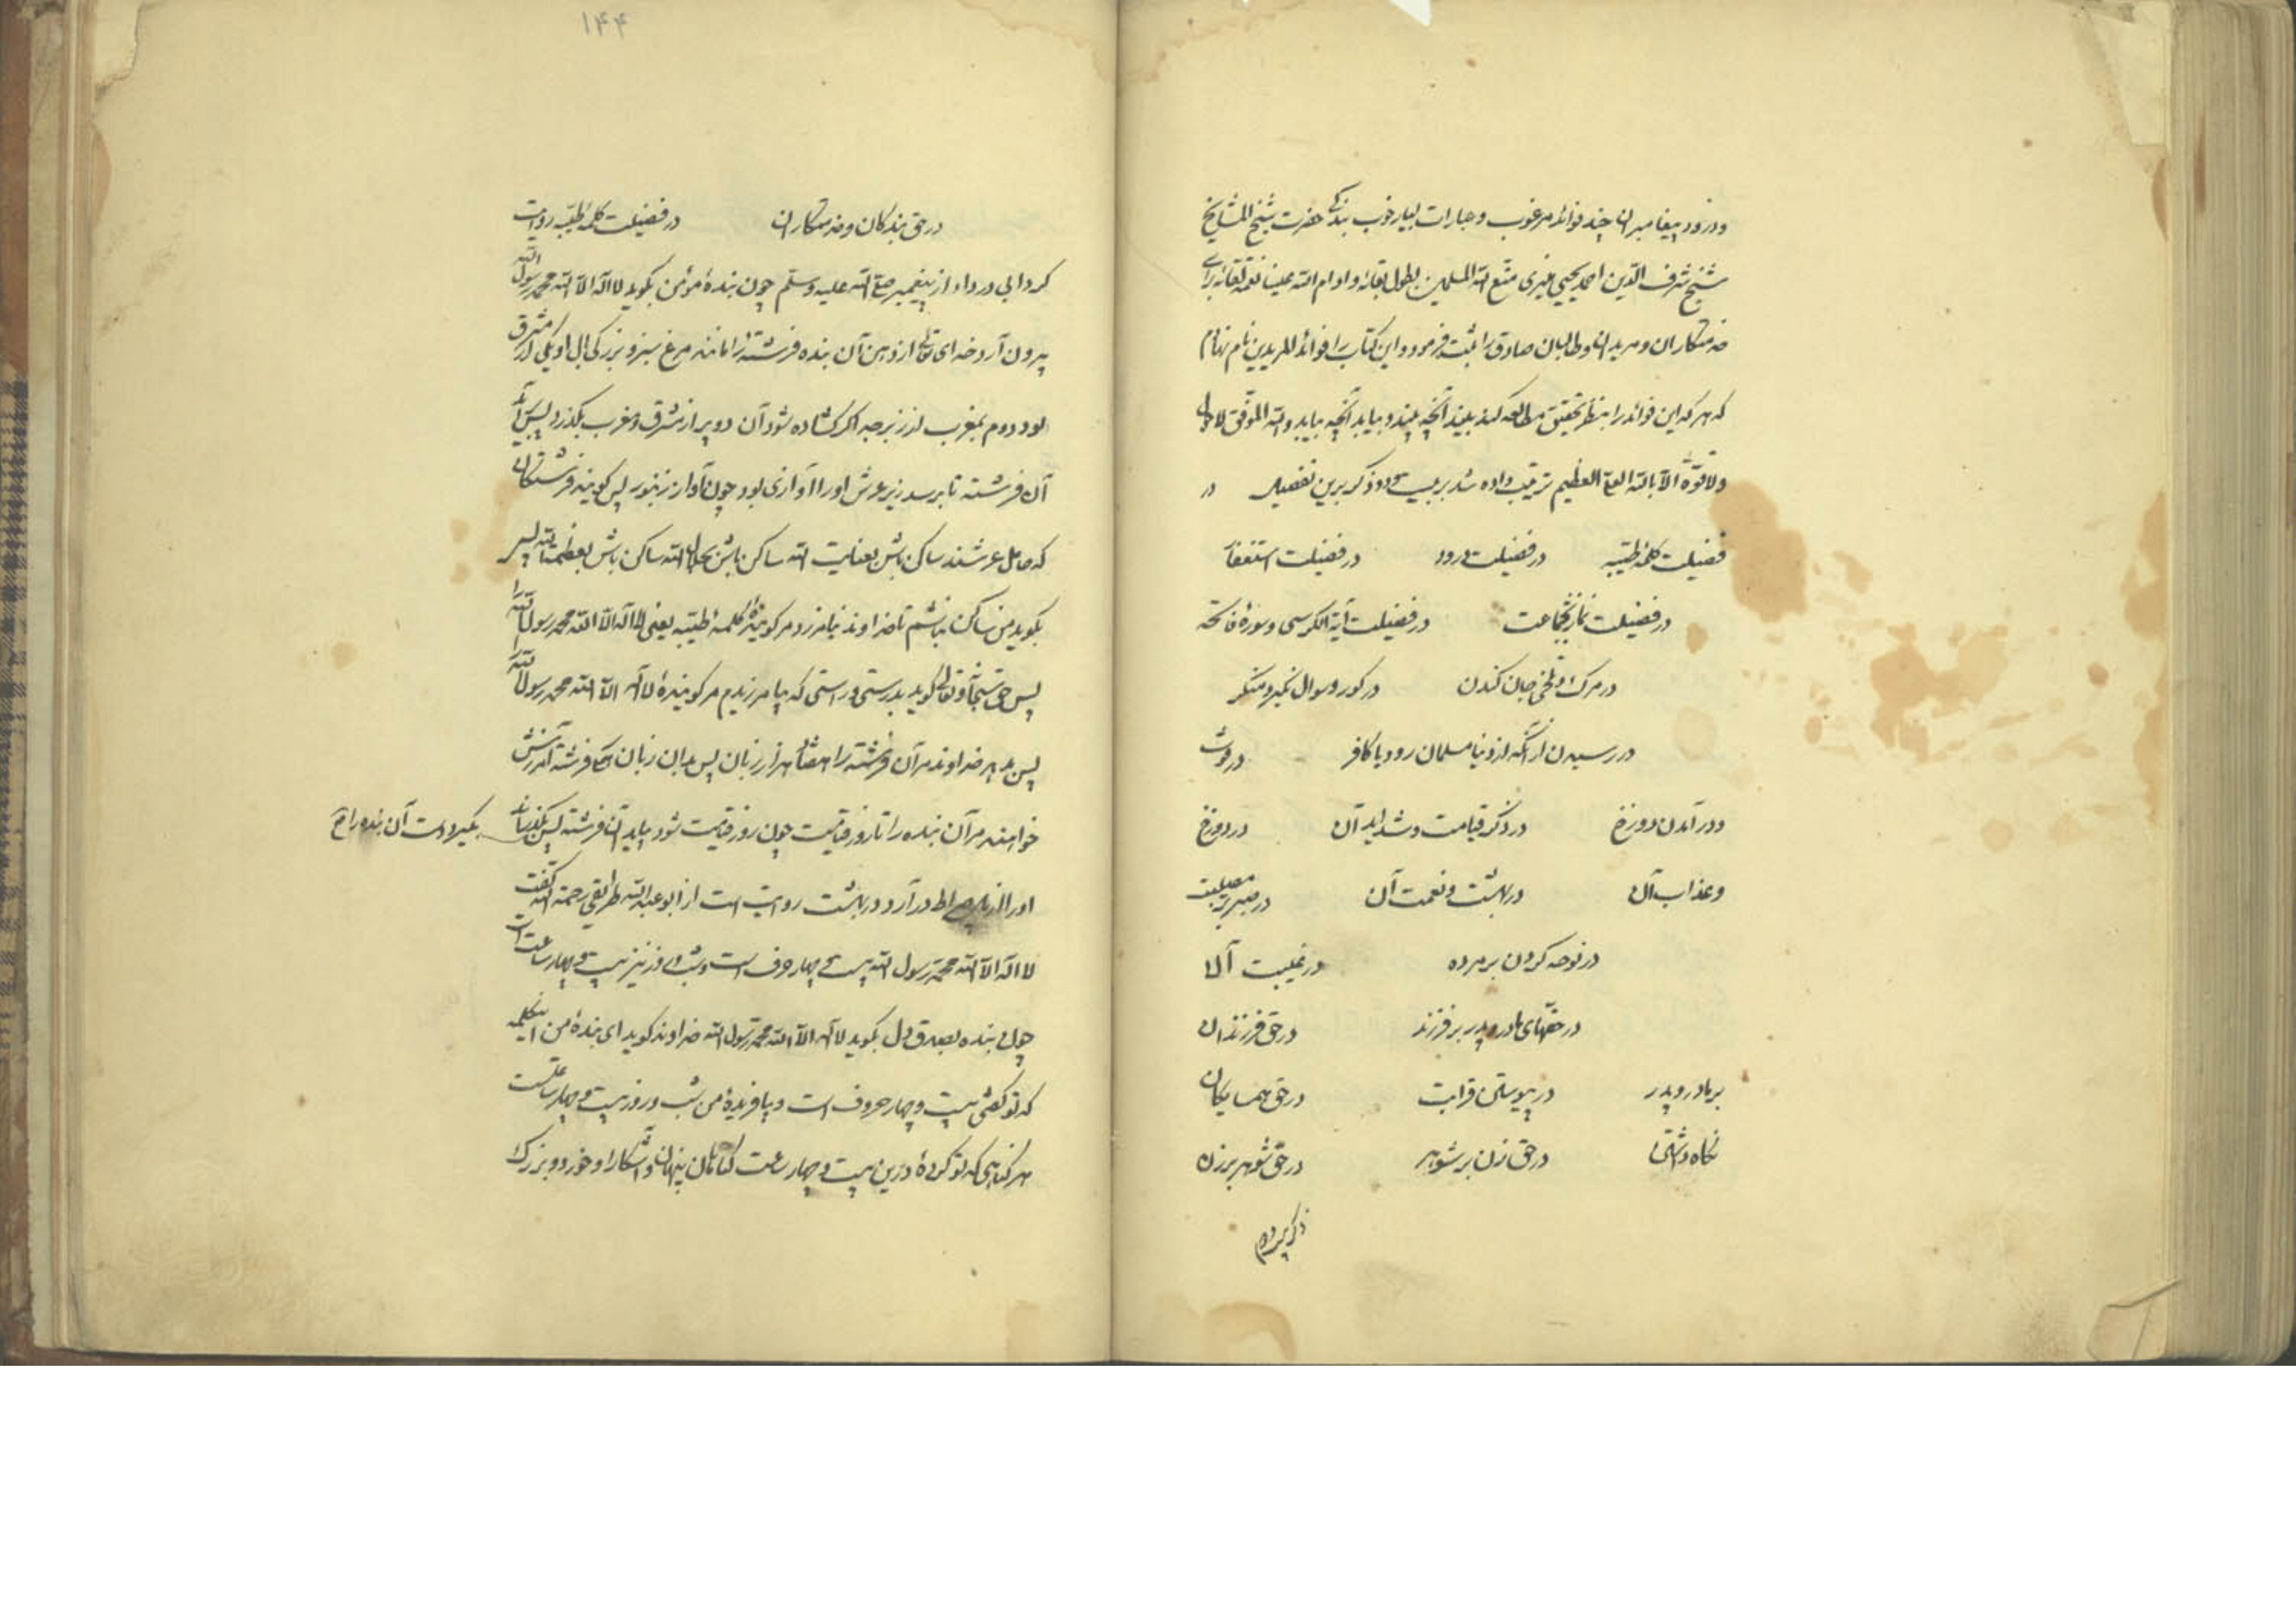 و درود پیغامبران چند فوائد مرغوب و عبارات بسیار خوب بندگی حضرت شیخ المشایخ
شیخ شرف الدین احمد یحیی منیری متع الله المسلمین بطول بقائه و ادام الله علینا نعمة لقائه برای
خدمتکاران و مریدان و طالبان صادق را ثبت فرمود و این کتاب را فوائد المریدین نام نهادم
که هر که این فوائد را بنظر تحقیق مطالعه کند ببیند آنچه ببیند و بیابد آنچه بیابد والله الموفق لا حول
ولا قوة الا بالله العلی العظیم ترتیب داده شد بر بیست و دو ذکر برین تفصیل در
فضیلت کلمهٔ طیبه در فضیلت درود در فضیلت استغفار
در فضیلت نماز بجماعت در فضیلت آیة الکرسی و سورهٔ فاتحه
در مرگ و تلخی جان کندن در گور و سوال نکیر و منکر
در رسیدن از آنکه از دنیا مسلمان رود یا کافر در
و در آمدن دوزخ در ذکر قیامت و شداید آن در دوزخ
و عذاب آن در بهشت و نعمت آن در صبر بر مصیبت
در نوحه کردن بر مرده در غیبت آن
در حقهای مادر و پدر بر فرزند در حق فرزندان
بر مادر و پدر در پیوستن قرابت در حق همسایگان
نگاه داشتن در حق زن بر شوهر در حق شوهر بر زن
ذکر
۱۴۴
در حق بندگان و خدمتکاران در فضیلت کلمهٔ طیبه روایت
کرد ابی درداء از پیغمبر صلی الله علیه وسلم چون بندهٔ مؤمن بگوید لا اله الا الله محمد رسول الله
بیرون آرد خدای تعالی از دهن آن بنده فرشتهٔ را مانند مرغ سبز و بزرگی بال او یکی در مشرق
بود دوم بمغرب از زبرجد اگر گشاده شود آن دو پر از مشرق و مغرب بگذرد پس آید
آن فرشته تا برسد زیر عرش او را آوازی بود چون آواز زنبور پس گویند فرشتگان
که حامل عرشند ساکن باش بعنایت الله ساکن باش بجلال الله ساکن باش بعظمت الله پس
بگوید من ساکن نباشم تا خداوند نیامرزد مر گویندهٔ کلمهٔ طیبه یعنی لا اله الا الله محمد رسول الله را
پس حق سبحانه و تعالی گوید بدرستی و راستی که بیامرزیدم مر گویندهٔ لا اله الا الله محمد رسول الله را
پس بدهد خداوند مر آن فرشته را هفتاد هزار زبان پس بدان زبان فرشته آمرزش
خواهند مر آن بنده را تا روز قیامت چون روز قیامت شود بیاید آن فرشته پس بگیرد دست آن بنده را
او را از پل صراط در آرد در بهشت روایت است از ابو عبد الله رحمة الله گفت
لا اله الا الله محمد رسول الله بیست و چهار حرف است و شب و روز نیز بیست و چهار ساعت است
چون بنده بصدق دل بگوید لا اله الا الله محمد رسول الله خداوند گوید ای بندهٔ من این کلمه
که تو گفتی بیست و چهار حروف است و بیافریدهٔ من شب و روز بیست و چهار ساعتست
هر گناهی که تو کردهٔ درین بیست و چهار ساعت گناهان پنهان و آشکارا و خورد و بزرگ